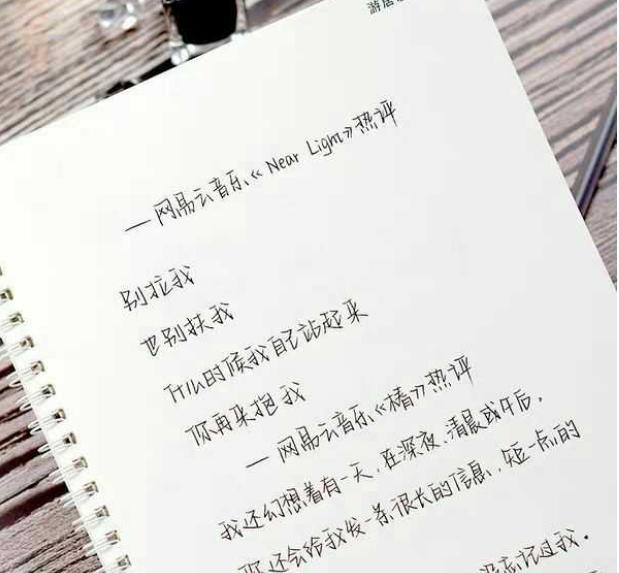 游居
— 网易云音乐《Near Light》热评
别拉我
也别扶我
什么时候我自己站起来
你再来抱我
— 网易云音乐《椿》热评
我还幻想着有一天,在深夜、清晨或午后,
你还会给我发一条很长的信息,短一点的
没忘记过我。